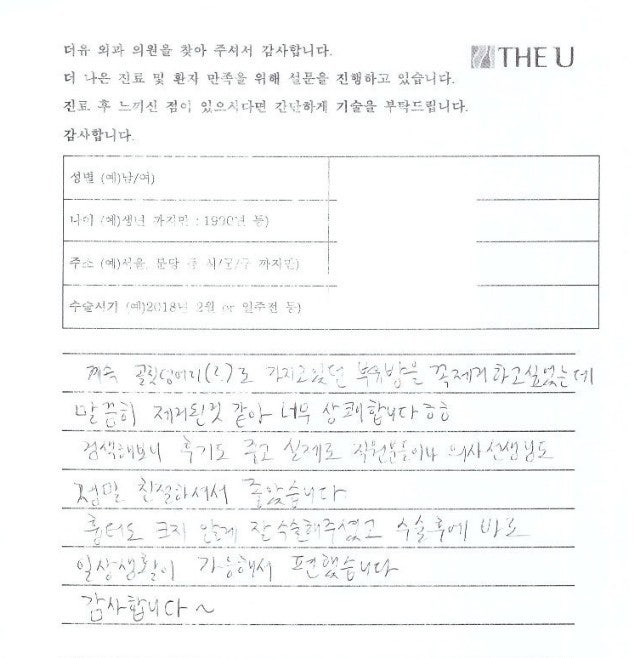 더유 외과 의원을 찾아 주셔서 감사합니다.
THE U
더 나은 진료 및 환자 만족을 위해 설문을 진행하고 있습니다.
진료 후 느끼신 점이 있으시다면 간단하게 기술을 부탁드립니다.
감사합니다.
성별 (예)남/여)
나이 (예)생년 까지만 : 1990년 등)
주소 (예)서울, 분당 등 시/군/구 까지만)
수술시기 (예)2018년 2월 or 일주전 등)
계속 골칫덩어리(?)로 가지고있던 부유방을 꼭제거하고싶었는데
말끔히 제거된것 같아 너무 상쾌합니다ㅎㅎ
검색해보니 후기도 좋고 실제로 직원분들이나 의사선생님도
정말 친절하셔서 좋았습니다
흉터도 크지 않게 잘 수술해주셨고 수술후에 바로
일상생활이 가능해서 편했습니다
감사합니다 ~